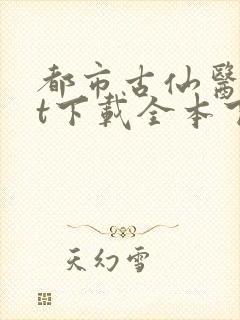 都市古仙醫
t下載全本
天幻雪